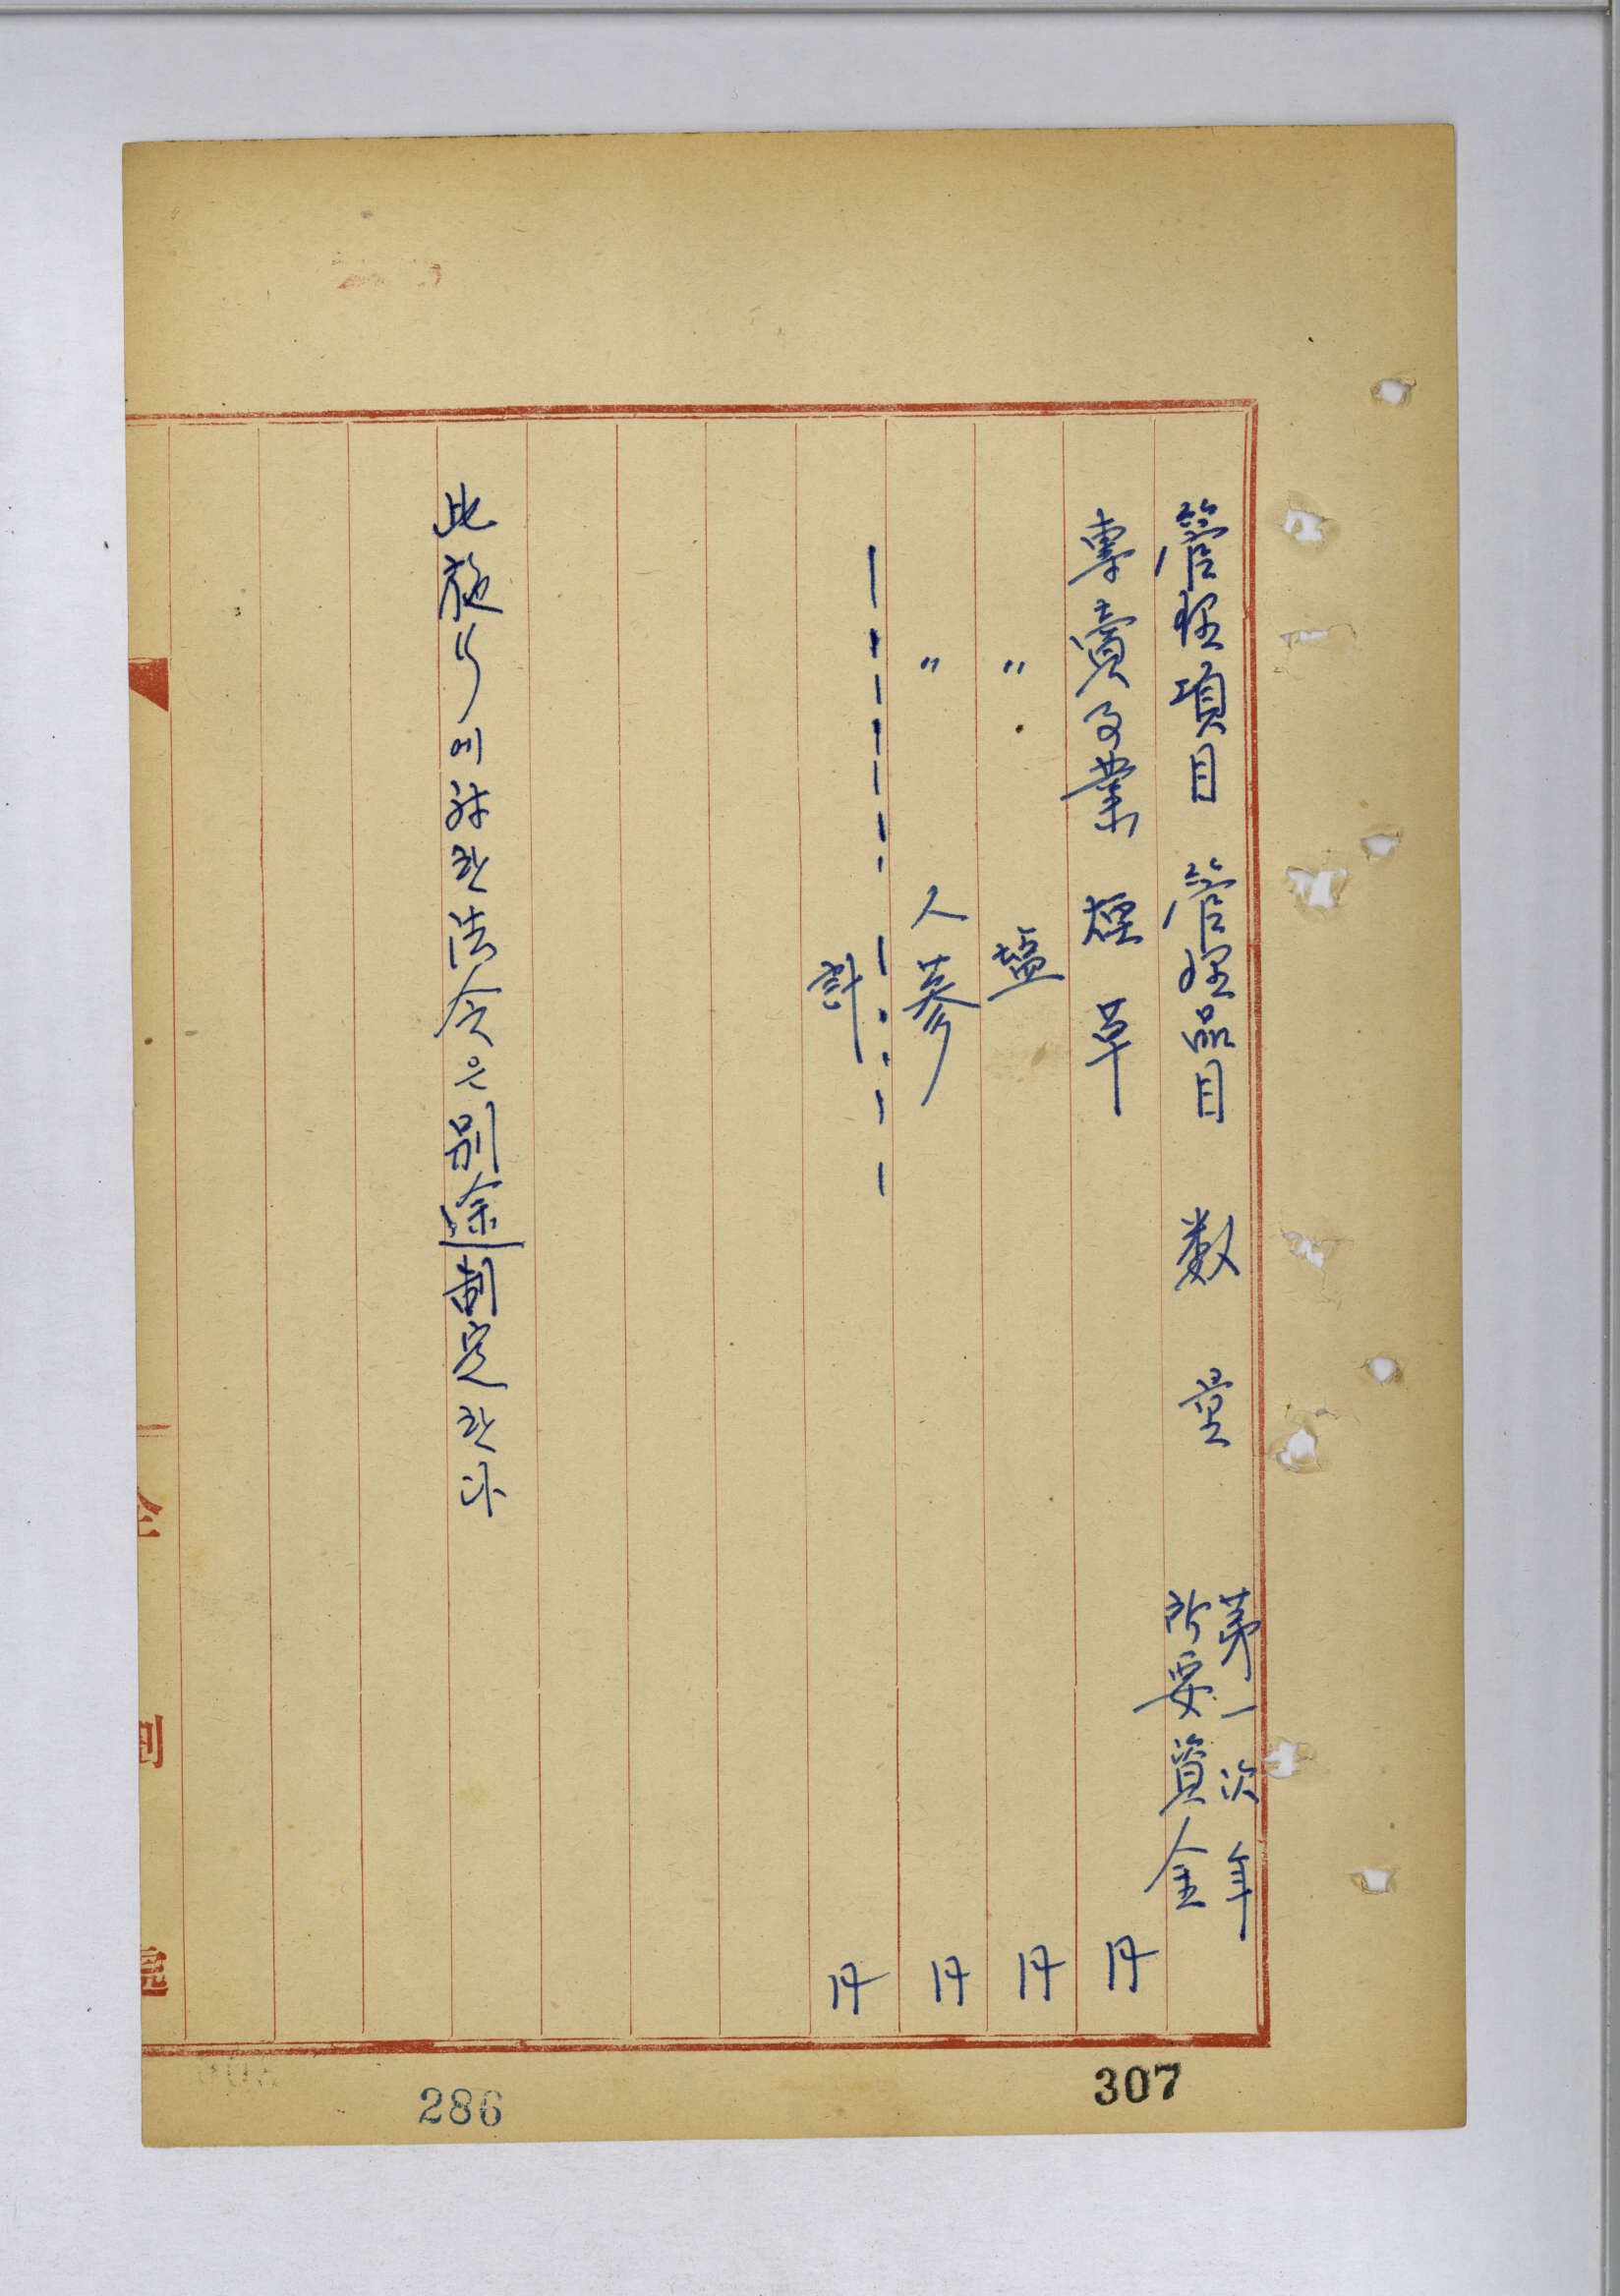 管理項目 管理品目 数量 第一次年
所要資金
專賣事業 煙草 円
〃 塩 円
〃 人蔘 円
計 円
此施行에対한法令은別途制定한다
307
286